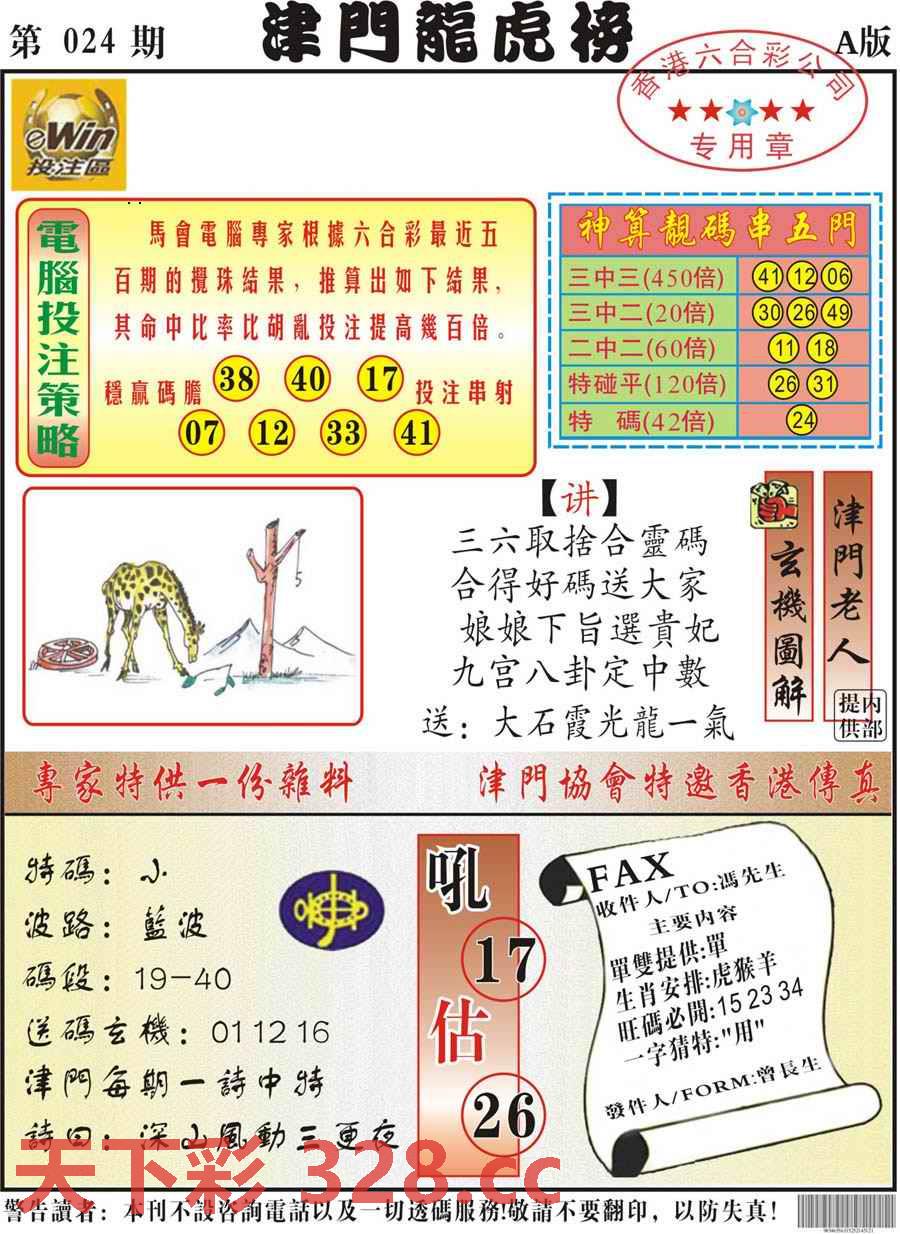 第 024 期
津門龍虎榜
A版
香港六合彩公司
专用章
eWin
投注區
電腦投注策略
馬會電腦專家根據六合彩最近五
百期的攪珠結果，推算出如下結果，
其命中比率比胡亂投注提高幾百倍。
穩贏碼膽 38 40 17 投注串射
07 12 33 41
神算靚碼串五門
三中三(450倍) 41 12 06
三中二(20倍) 30 26 49
二中二(60倍) 11 18
特碰平(120倍) 26 31
特　碼(42倍) 24
【讲】
三六取捨合靈碼
合得好碼送大家
娘娘下旨選貴妃
九宫八卦定中數
送：大石霞光龍一氣
玄機圖解
津門老人
内部提供
專家特供一份雜料
津門協會特邀香港傳真
特碼：小
波路：藍波
碼段：19-40
送碼玄機：01 12 16
津門每期一詩中特
詩曰：深山風動三更夜
吼
17
估
26
FAX
收件人/TO:馮先生
主要内容
單雙提供:單
生肖安排:虎猴羊
旺碼必開:15 23 34
一字猜特:"用"
發件人/FORM:曾長生
天下彩 328.cc
警告讀者：本刊不設咨詢電話以及一切透碼服務!敬請不要翻印，以防失真!